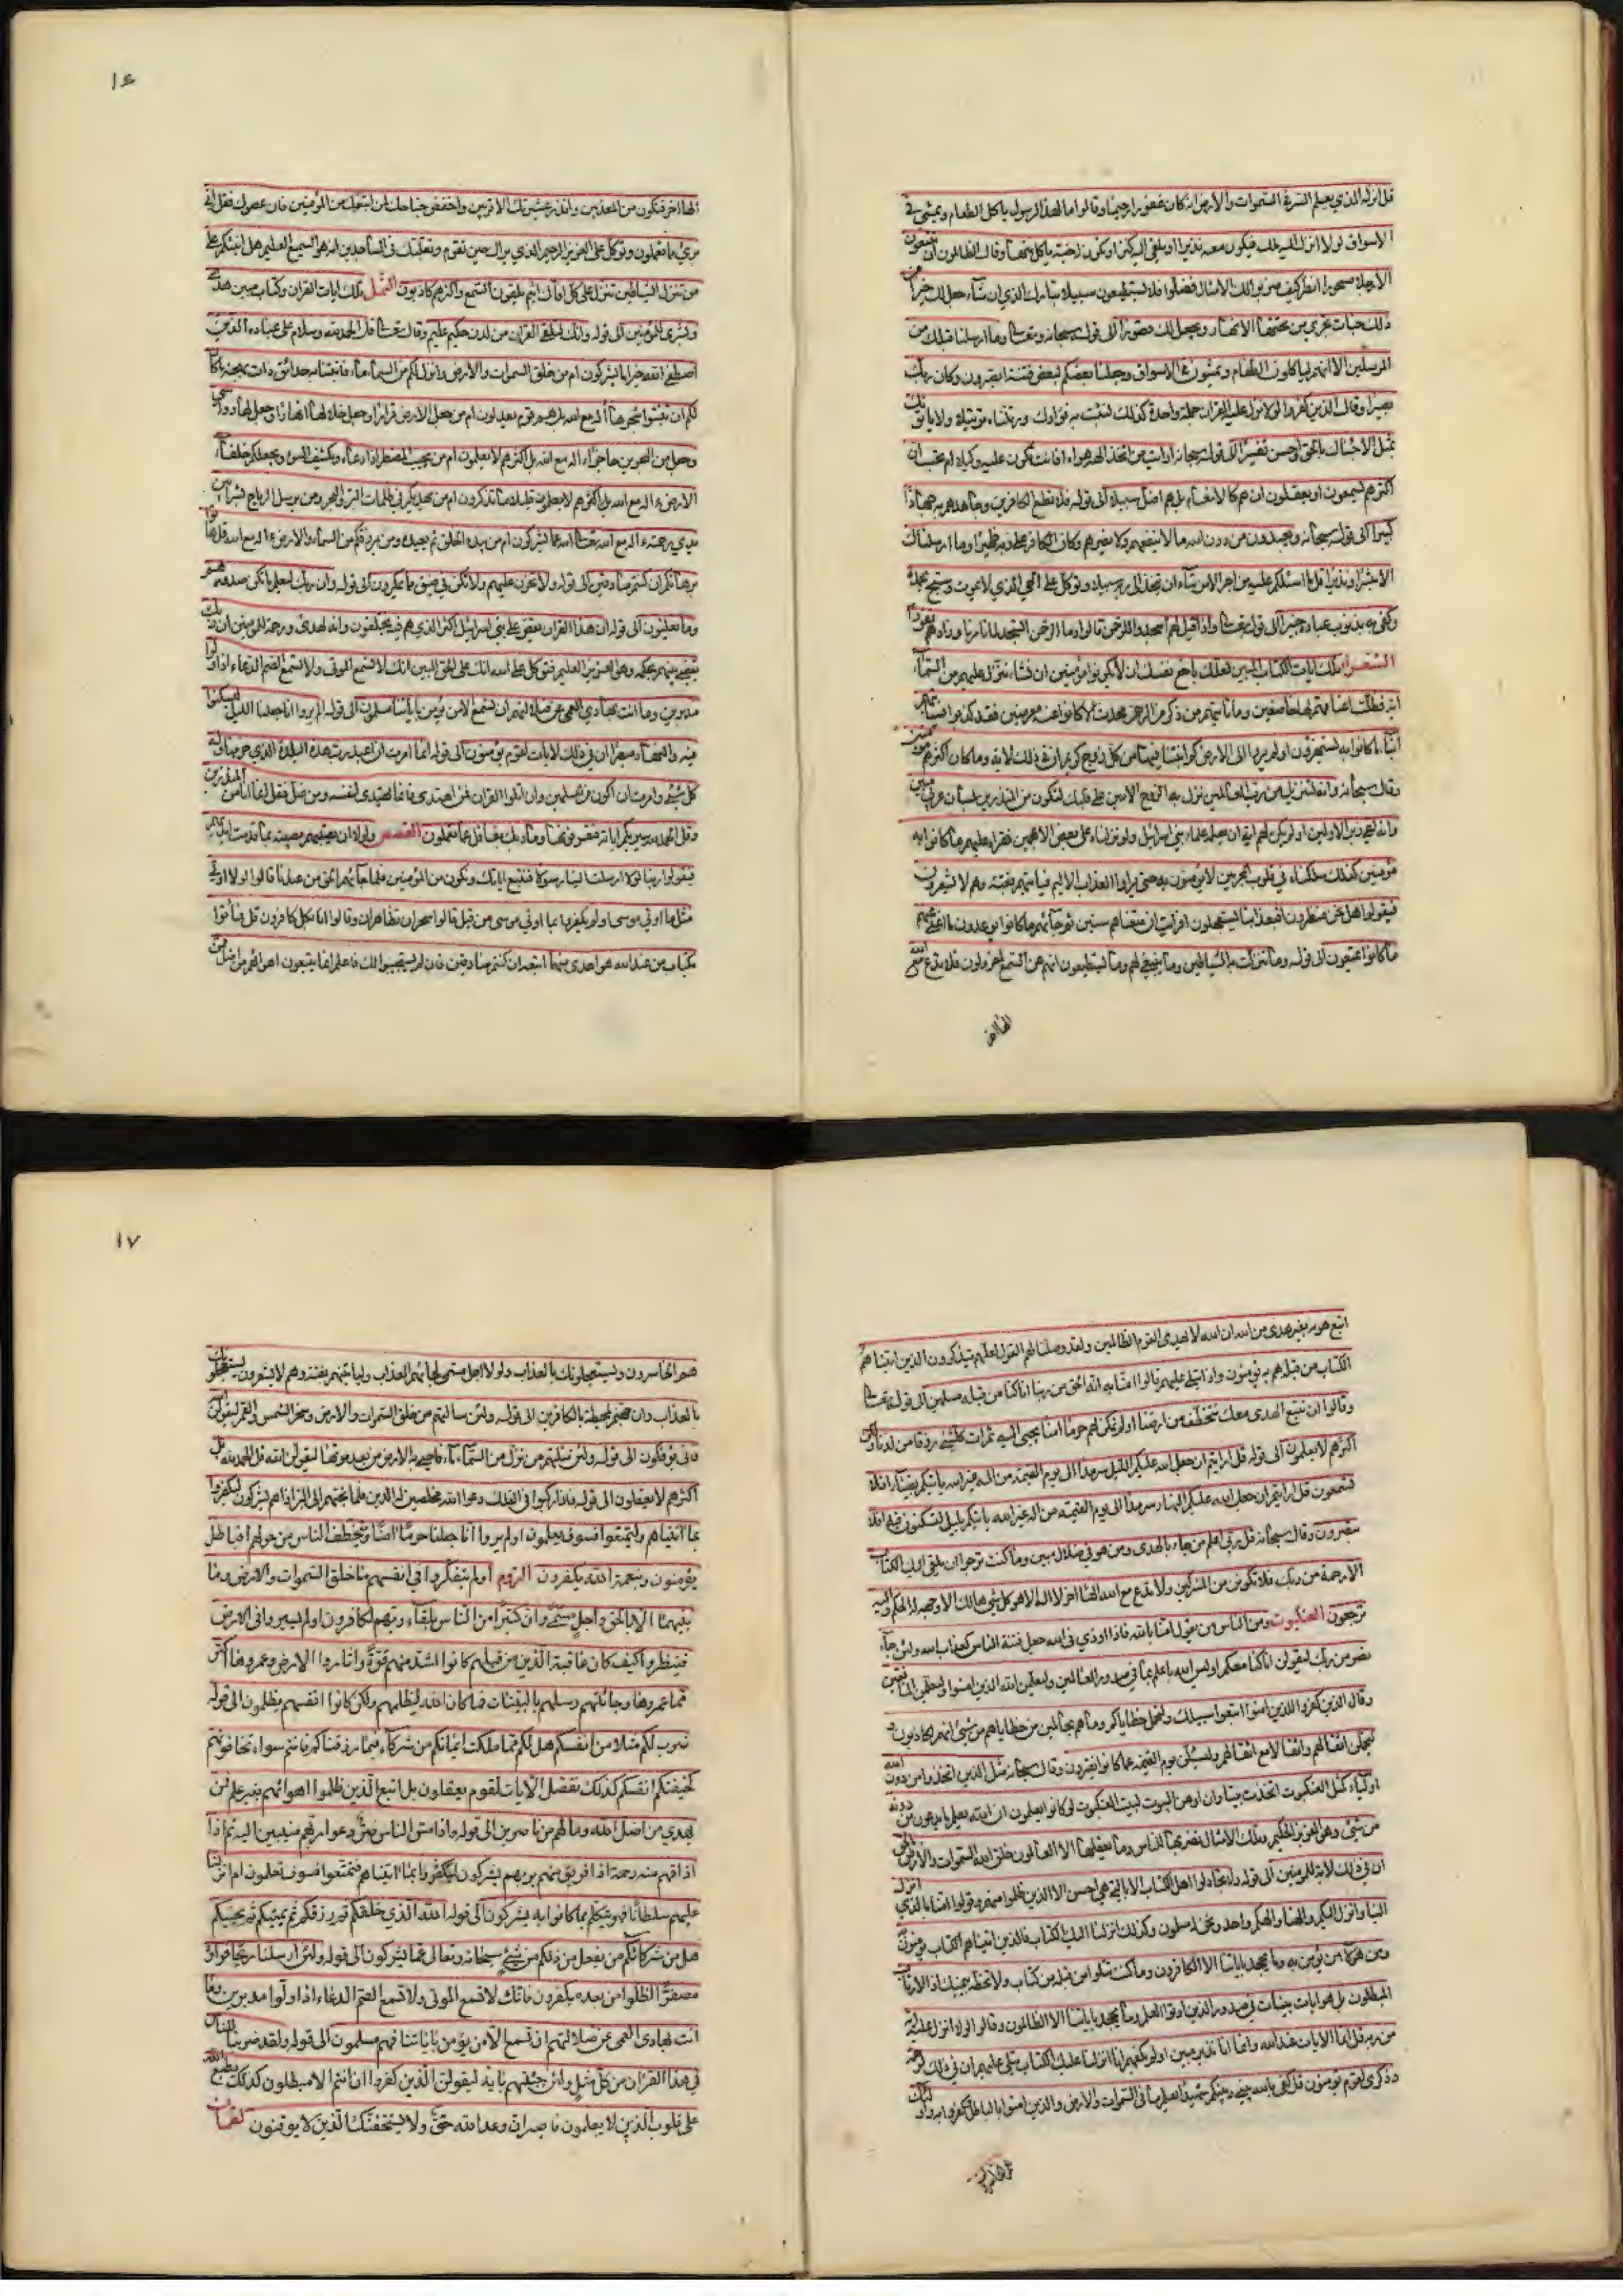 قل انزله الذي يعلم السر في السموات والارض انه كان غفورا رحيما وقالوا ما لهذا الرسول ياكل الطعام ويمشي في
الاسواق لولا انزل اليه ملك فيكون معه نذيرا او يلقى اليه كنز او تكون له جنة ياكل منها وقال الظالمون ان تتبعون
الا رجلا مسحورا انظر كيف ضربوا لك الامثال فضلوا فلا يستطيعون سبيلا تبارك الذي ان شاء جعل لك خيرا من
ذلك جنات تجري من تحتها الانهار ويجعل لك قصورا الى قوله سبحانه وتعالى وما ارسلنا قبلك من
المرسلين الا انهم لياكلون الطعام ويمشون في الاسواق وجعلنا بعضكم لبعض فتنة اتصبرون وكان ربك
بصيرا وقال الذين كفروا لولا نزل عليه القران جملة واحدة كذلك لنثبت به فؤادك ورتلناه ترتيلا ولا ياتونك
بمثل الا جئناك بالحق واحسن تفسيرا الى قوله سبحانه ارايت من اتخذ الهه هواه افانت تكون عليه وكيلا ام تحسب ان
اكثرهم يسمعون او يعقلون ان هم الا كالانعام بل هم اضل سبيلا الى قوله فلا تطع الكافرين وجاهدهم به جهادا
كبيرا الى قوله سبحانه ويعبدون من دون الله ما لا ينفعهم ولا يضرهم وكان الكافر على ربه ظهيرا وما ارسلناك
الا مبشرا ونذيرا قل ما اسئلكم عليه من اجر الا من شاء ان يتخذ الى ربه سبيلا وتوكل على الحي الذي لا يموت وسبح بحمده
وكفى به بذنوب عباده خبيرا الى قوله تعالى واذا قيل لهم اسجدوا للرحمن قالوا وما الرحمن انسجد لما تامرنا وزادهم نفورا
الشعراء تلك ايات الكتاب المبين لعلك باخع نفسك ان لا يكونوا مؤمنين ان نشاء ننزل عليهم من السماء
اية فظلت اعناقهم لها خاضعين وما ياتيهم من ذكر من الرحمن محدث الا كانوا عنه معرضين فقد كذبوا فسياتيهم
انباء ما كانوا به يستهزؤن اولم يروا الى الارض كم انبتنا فيها من كل زوج كريم ان في ذلك لاية وما كان اكثرهم مؤمنين
وقال سبحانه وانه لتنزيل من رب العالمين نزل به الروح الامين على قلبك لتكون من المنذرين بلسان عربي مبين
وانه لفي زبر الاولين اولم يكن لهم اية ان يعلمه علماء بني اسرائيل ولو نزلناه على بعض الاعجمين فقراه عليهم ما كانوا به
مؤمنين كذلك سلكناه في قلوب المجرمين لا يؤمنون به حتى يروا العذاب الاليم فياتيهم بغتة وهم لا يشعرون
فيقولوا هل نحن منظرون افبعذابنا يستعجلون افرايت ان متعناهم سنين ثم جاءهم ما كانوا يوعدون ما اغنى عنهم
ما كانوا يمتعون الى قوله وما تنزلت به الشياطين وما ينبغي لهم وما يستطيعون انهم عن السمع لمعزولون فلا تدع مع الله
الها اخر
١٤
الها اخر فتكون من المعذبين وانذر عشيرتك الاقربين واخفض جناحك لمن اتبعك من المؤمنين فان عصوك فقل اني
بريء مما تعملون وتوكل على العزيز الرحيم الذي يراك حين تقوم وتقلبك في الساجدين انه هو السميع العليم هل انبئكم على
من تنزل الشياطين تنزل على كل افاك اثيم يلقون السمع واكثرهم كاذبون النمل تلك ايات القران وكتاب مبين هدى
وبشرى للمؤمنين الى قوله وانك لتلقى القران من لدن حكيم عليم وقال تعالى قل الحمد لله وسلام على عباده الذين
اصطفى الله خير اما يشركون ام من خلق السموات والارض وانزل لكم من السماء ماء فانبتنا به حدائق ذات بهجة ما كان
لكم ان تنبتوا شجرها االه مع الله بل هم قوم يعدلون ام من جعل الارض قرارا وجعل خلالها انهارا وجعل لها رواسي
وجعل بين البحرين حاجزا االه مع الله بل اكثرهم لا يعلمون ام من يجيب المضطر اذا دعاه ويكشف السوء ويجعلكم خلفاء
الارض االه مع الله قليلا ما تذكرون ام من يهديكم في ظلمات البر والبحر ومن يرسل الرياح بشرا بين
يدي رحمته االه مع الله تعالى الله عما يشركون ام من يبدء الخلق ثم يعيده ومن يرزقكم من السماء والارض االه مع الله قل هاتوا
برهانكم ان كنتم صادقين الى قوله ولا تحزن عليهم ولا تكن في ضيق مما يمكرون الى قوله وان ربك ليعلم ما تكن صدورهم
وما يعلنون الى قوله ان هذا القران يقص على بني اسرائيل اكثر الذي هم فيه يختلفون وانه لهدى ورحمة للمؤمنين ان ربك
يقضي بينهم بحكمه وهو العزيز العليم فتوكل على الله انك على الحق المبين انك لا تسمع الموتى ولا تسمع الصم الدعاء اذا ولوا
مدبرين وما انت بهادي العمي عن ضلالتهم ان تسمع الا من يؤمن باياتنا فهم مسلمون الى قوله الم يروا انا جعلنا الليل ليسكنوا
فيه والنهار مبصرا ان في ذلك لايات لقوم يؤمنون الى قوله انما امرت ان اعبد رب هذه البلدة الذي حرمها وله
كل شيء وامرت ان اكون من المسلمين وان اتلوا القران فمن اهتدى فانما يهتدي لنفسه ومن ضل فقل انما انا من المنذرين
وقل الحمد لله سيريكم اياته فتعرفونها وما ربك بغافل عما تعملون القصص ولولا ان تصيبهم مصيبة بما قدمت ايديهم
فيقولوا ربنا لولا ارسلت الينا رسولا فنتبع اياتك ونكون من المؤمنين فلما جاءهم الحق من عندنا قالوا لولا اوتي
مثل ما اوتي موسى اولم يكفروا بما اوتي موسى من قبل قالوا سحران تظاهرا وقالوا انا بكل كافرون قل فاتوا
بكتاب من عند الله هو اهدى منهما اتبعه ان كنتم صادقين فان لم يستجيبوا لك فاعلم انما يتبعون اهواءهم ومن اضل ممن
اتبع هويه بغير هدى من الله ان الله لا يهدي القوم الظالمين ولقد وصلنا لهم القول لعلهم يتذكرون الذين اتيناهم
الكتاب من قبله هم به يؤمنون واذا يتلى عليهم قالوا امنا به انه الحق من ربنا انا كنا من قبله مسلمين الى قوله تعالى
وقالوا ان نتبع الهدى معك نتخطف من ارضنا اولم نمكن لهم حرما امنا يجبى اليه ثمرات كل شيء رزقا من لدنا ولكن
اكثرهم لا يعلمون الى قوله قل ارايتم ان جعل الله عليكم الليل سرمدا الى يوم القيمة من اله غير الله ياتيكم بضياء افلا
تسمعون قل ارايتم ان جعل الله عليكم النهار سرمدا الى يوم القيمة من اله غير الله ياتيكم بليل تسكنون فيه افلا
تبصرون وقال سبحانه قل ربي اعلم من جاء بالهدى ومن هو في ضلال مبين وما كنت ترجوا ان يلقى اليك الكتاب
الا رحمة من ربك فلا تكونن من المشركين ولا تدع مع الله الها اخر لا اله الا هو كل شيء هالك الا وجهه له الحكم واليه
ترجعون العنكبوت ومن الناس من يقول امنا بالله فاذا اوذي في الله جعل فتنة الناس كعذاب الله ولئن جاء
نصر من ربك ليقولن انا كنا معكم اوليس الله باعلم بما في صدور العالمين وليعلمن الله الذين امنوا وليعلمن المنافقين
وقال الذين كفروا للذين امنوا اتبعوا سبيلنا ولنحمل خطاياكم وما هم بحاملين من خطاياهم من شيء انهم لكاذبون و
ليحملن اثقالهم واثقالا مع اثقالهم وليسئلن يوم القيمة عما كانوا يفترون وقال سبحانه مثل الذين اتخذوا من دون الله
اولياء كمثل العنكبوت اتخذت بيتا وان اوهن البيوت لبيت العنكبوت لو كانوا يعلمون ان الله يعلم ما يدعون من دونه
من شيء وهو العزيز الحكيم وتلك الامثال نضربها للناس وما يعقلها الا العالمون خلق الله السموات والارض بالحق
ان في ذلك لاية للمؤمنين الى قوله ولا تجادلوا اهل الكتاب الا بالتي هي احسن الا الذين ظلموا منهم وقولوا امنا بالذي انزل
الينا وانزل اليكم والهنا والهكم واحد ونحن له مسلمون وكذلك انزلنا اليك الكتاب فالذين اتيناهم الكتاب يؤمنون
ومن هؤلاء من يؤمن به وما يجحد باياتنا الا الكافرون وما كنت تتلوا من قبله من كتاب ولا تخطه بيمينك اذا لارتاب
المبطلون بل هو ايات بينات في صدور الذين اوتوا العلم وما يجحد باياتنا الا الظالمون وقالوا لولا انزل عليه اية
من ربه قل انما الايات عند الله وانما انا نذير مبين اولم يكفهم انا انزلنا عليك الكتاب يتلى عليهم ان في ذلك لرحمة
وذكرى لقوم يؤمنون قل كفى بالله بيني وبينكم شهيدا يعلم ما في السموات والارض والذين امنوا بالباطل وكفروا بالله اولئك
١٧
هم الخاسرون ويستعجلونك بالعذاب ولولا اجل مسمى لجاءهم العذاب ولياتينهم بغتة وهم لا يشعرون يستعجلونك
بالعذاب وان جهنم لمحيطة بالكافرين الى قوله ولئن سالتهم من خلق السموات والارض وسخر الشمس والقمر ليقولن الله
فانى يؤفكون الى قوله ولئن سئلتهم من نزل من السماء ماء فاحيى به الارض من بعد موتها ليقولن الله قل الحمد لله بل
اكثرهم لا يعقلون الى قوله فاذا ركبوا في الفلك دعوا الله مخلصين له الدين فلما نجيهم الى البر اذا هم يشركون ليكفروا
بما اتيناهم وليتمتعوا فسوف يعلمون اولم يروا انا جعلنا حرما امنا ويتخطف الناس من حولهم افبالباطل
يؤمنون وبنعمة الله يكفرون الروم اولم يتفكروا في انفسهم ما خلق الله السموات والارض وما
بينهما الا بالحق واجل مسمى وان كثيرا من الناس بلقاء ربهم لكافرون اولم يسيروا في الارض
فينظروا كيف كان عاقبة الذين من قبلهم كانوا اشد منهم قوة واثاروا الارض وعمروها اكثر
مما عمروها وجاءتهم رسلهم بالبينات فما كان الله ليظلمهم ولكن كانوا انفسهم يظلمون الى قوله
ضرب لكم مثلا من انفسكم هل لكم مما ملكت ايمانكم من شركاء فيما رزقناكم فانتم فيه سواء تخافونهم
كخيفتكم انفسكم كذلك نفصل الايات لقوم يعقلون بل اتبع الذين ظلموا اهوائهم بغير علم فمن
يهدي من اضل الله وما لهم من ناصرين الى قوله واذا مس الناس ضر دعوا ربهم منيبين اليه ثم اذا
اذاقهم منه رحمة اذا فريق منهم بربهم يشركون ليكفروا بما اتيناهم فتمتعوا فسوف تعلمون ام انزلنا
عليهم سلطانا فهو يتكلم بما كانوا به يشركون الى قوله الله الذي خلقكم ثم رزقكم ثم يميتكم ثم يحييكم
هل من شركائكم من يفعل من ذلكم من شيء سبحانه وتعالى عما يشركون الى قوله ولئن ارسلنا ريحا فراوه
مصفرا لظلوا من بعده يكفرون فانك لا تسمع الموتى ولا تسمع الصم الدعاء اذا ولوا مدبرين وما
انت بهادي العمى عن ضلالتهم ان تسمع الا من يؤمن باياتنا فهم مسلمون الى قوله ولقد ضربنا للناس
في هذا القران من كل مثل ولئن جئتهم باية ليقولن الذين كفروا ان انتم الا مبطلون كذلك يطبع الله
على قلوب الذين لا يعلمون فاصبر ان وعد الله حق ولا يستخفنك الذين لا يوقنون لقمان